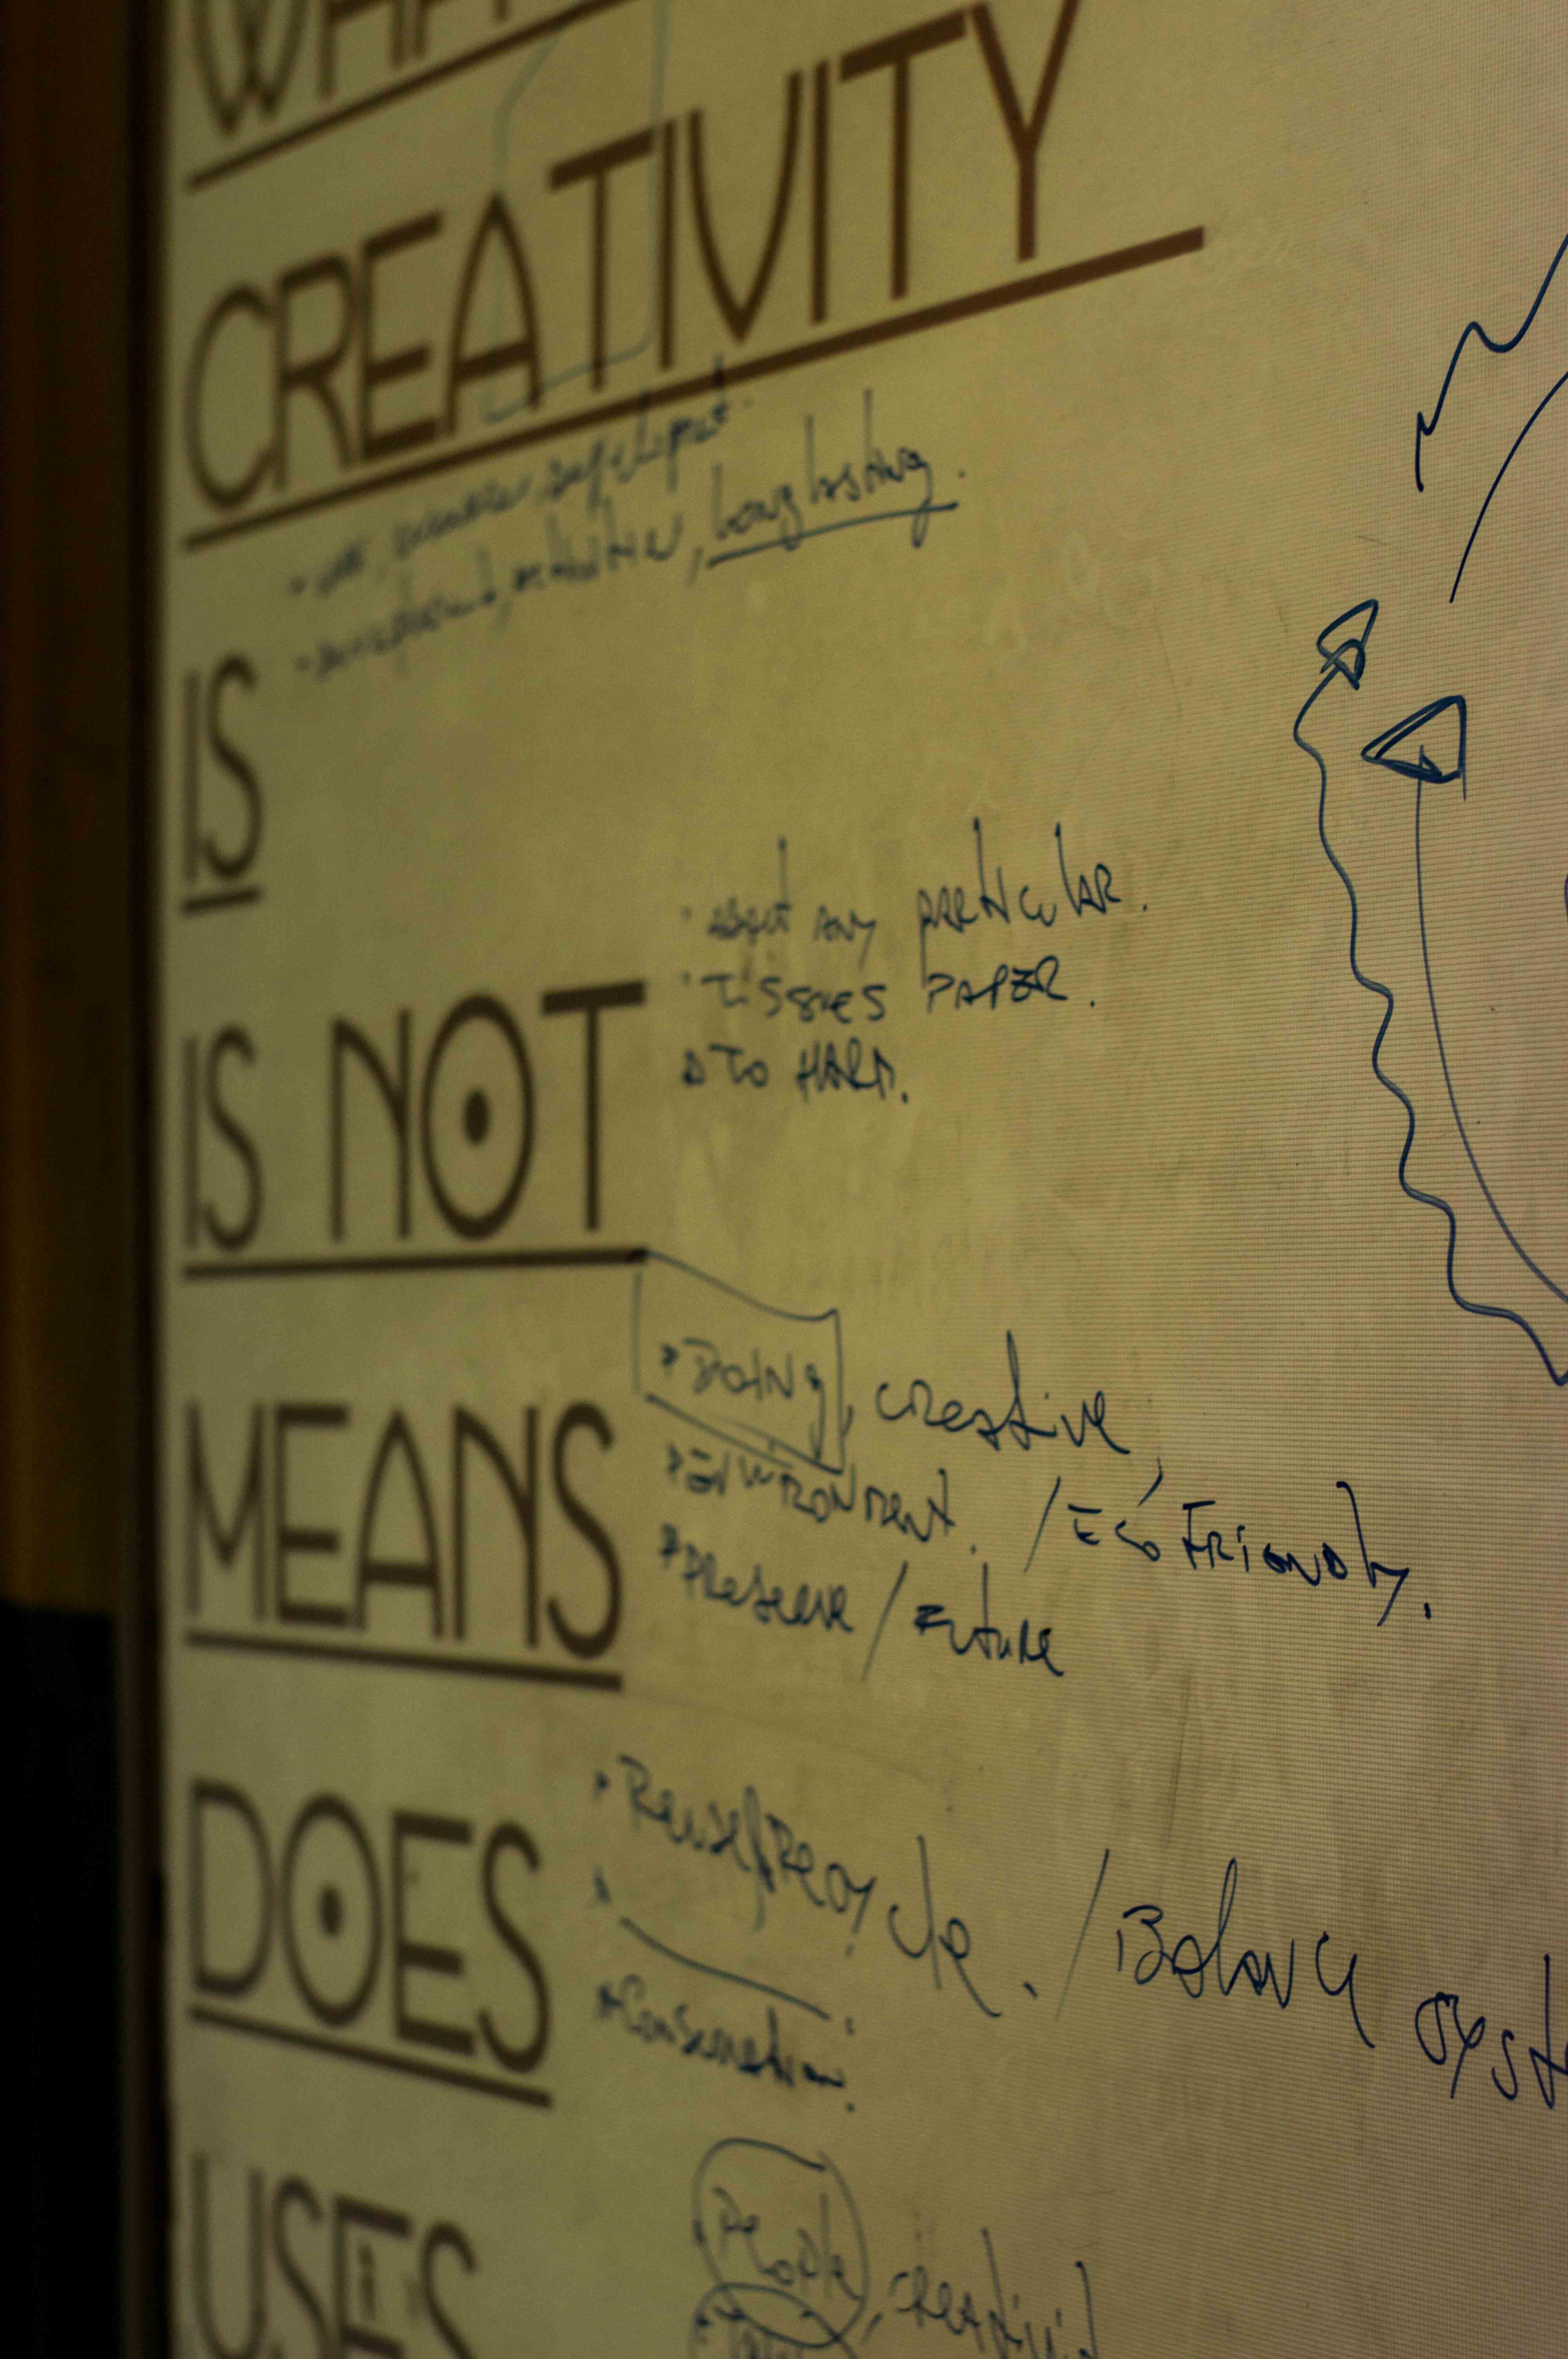 CREATIVITY
long lasting.
IS
• About any particular.
• TISSUES PAPER.
TO HARD.
IS NOT
Doing, creative,
ENVIRONMENT. / ECO FRIENDLY.
PRESERVE / Future
MEANS
Reuse/Recycle. / Balance
DOES
Conservation.
USES
People, creativi